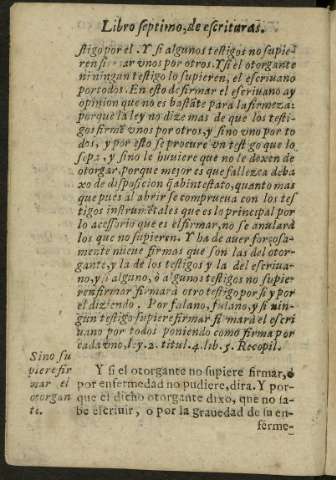 Libro septimo, de escrituras.
stigo por el. Y si algunos testigos no supie-
ren firmar vnos por otros. Y si el otorgante
ni ningun testigo lo supieren, el escriuano
por todos. En esto de firmar el escriuano ay
opinion que no es bastãte para la firmeza:
porque la ley no dize mas de que los testi-
gos firmẽ vnos por otros, y sino vno por to
dos, y por esto se procure vn testigo que lo
sepa, y sino le huuiere que no le dexen de
otorgar, porque mejor es que fallezca deba
xo de disposicion q̃ abintestato, quanto mas
que pues al abrir se comprueua con los tes
tigos instrumẽtales que es lo principal por
lo accessorio que es el firmar, no se anulará
los que no supieren. Y ha de auer forçosa-
mente nueue firmas que son las del otor-
gante, y la de los testigos y la del escriua-
no, y si alguno, ò algunos testigos no supie-
ren firmar firmará otro testigo por si y por
el diziendo. Por fulano, fulano, y si nin-
gun testigo supiere firmar firmará el escri
uano por todos poniendo como firma por
cada vno, l. y. 2. titul. 4. lib. 5. Recopil.
Sino su
piere fir
mar el
otorgan
te.
Y si el otorgante no supiere firmar, ò
por enfermedad no pudiere, dira. Y por-
que el dicho otorgante dixo, que no sa-
be escriuir, o por la grauedad de su en-
ferme-